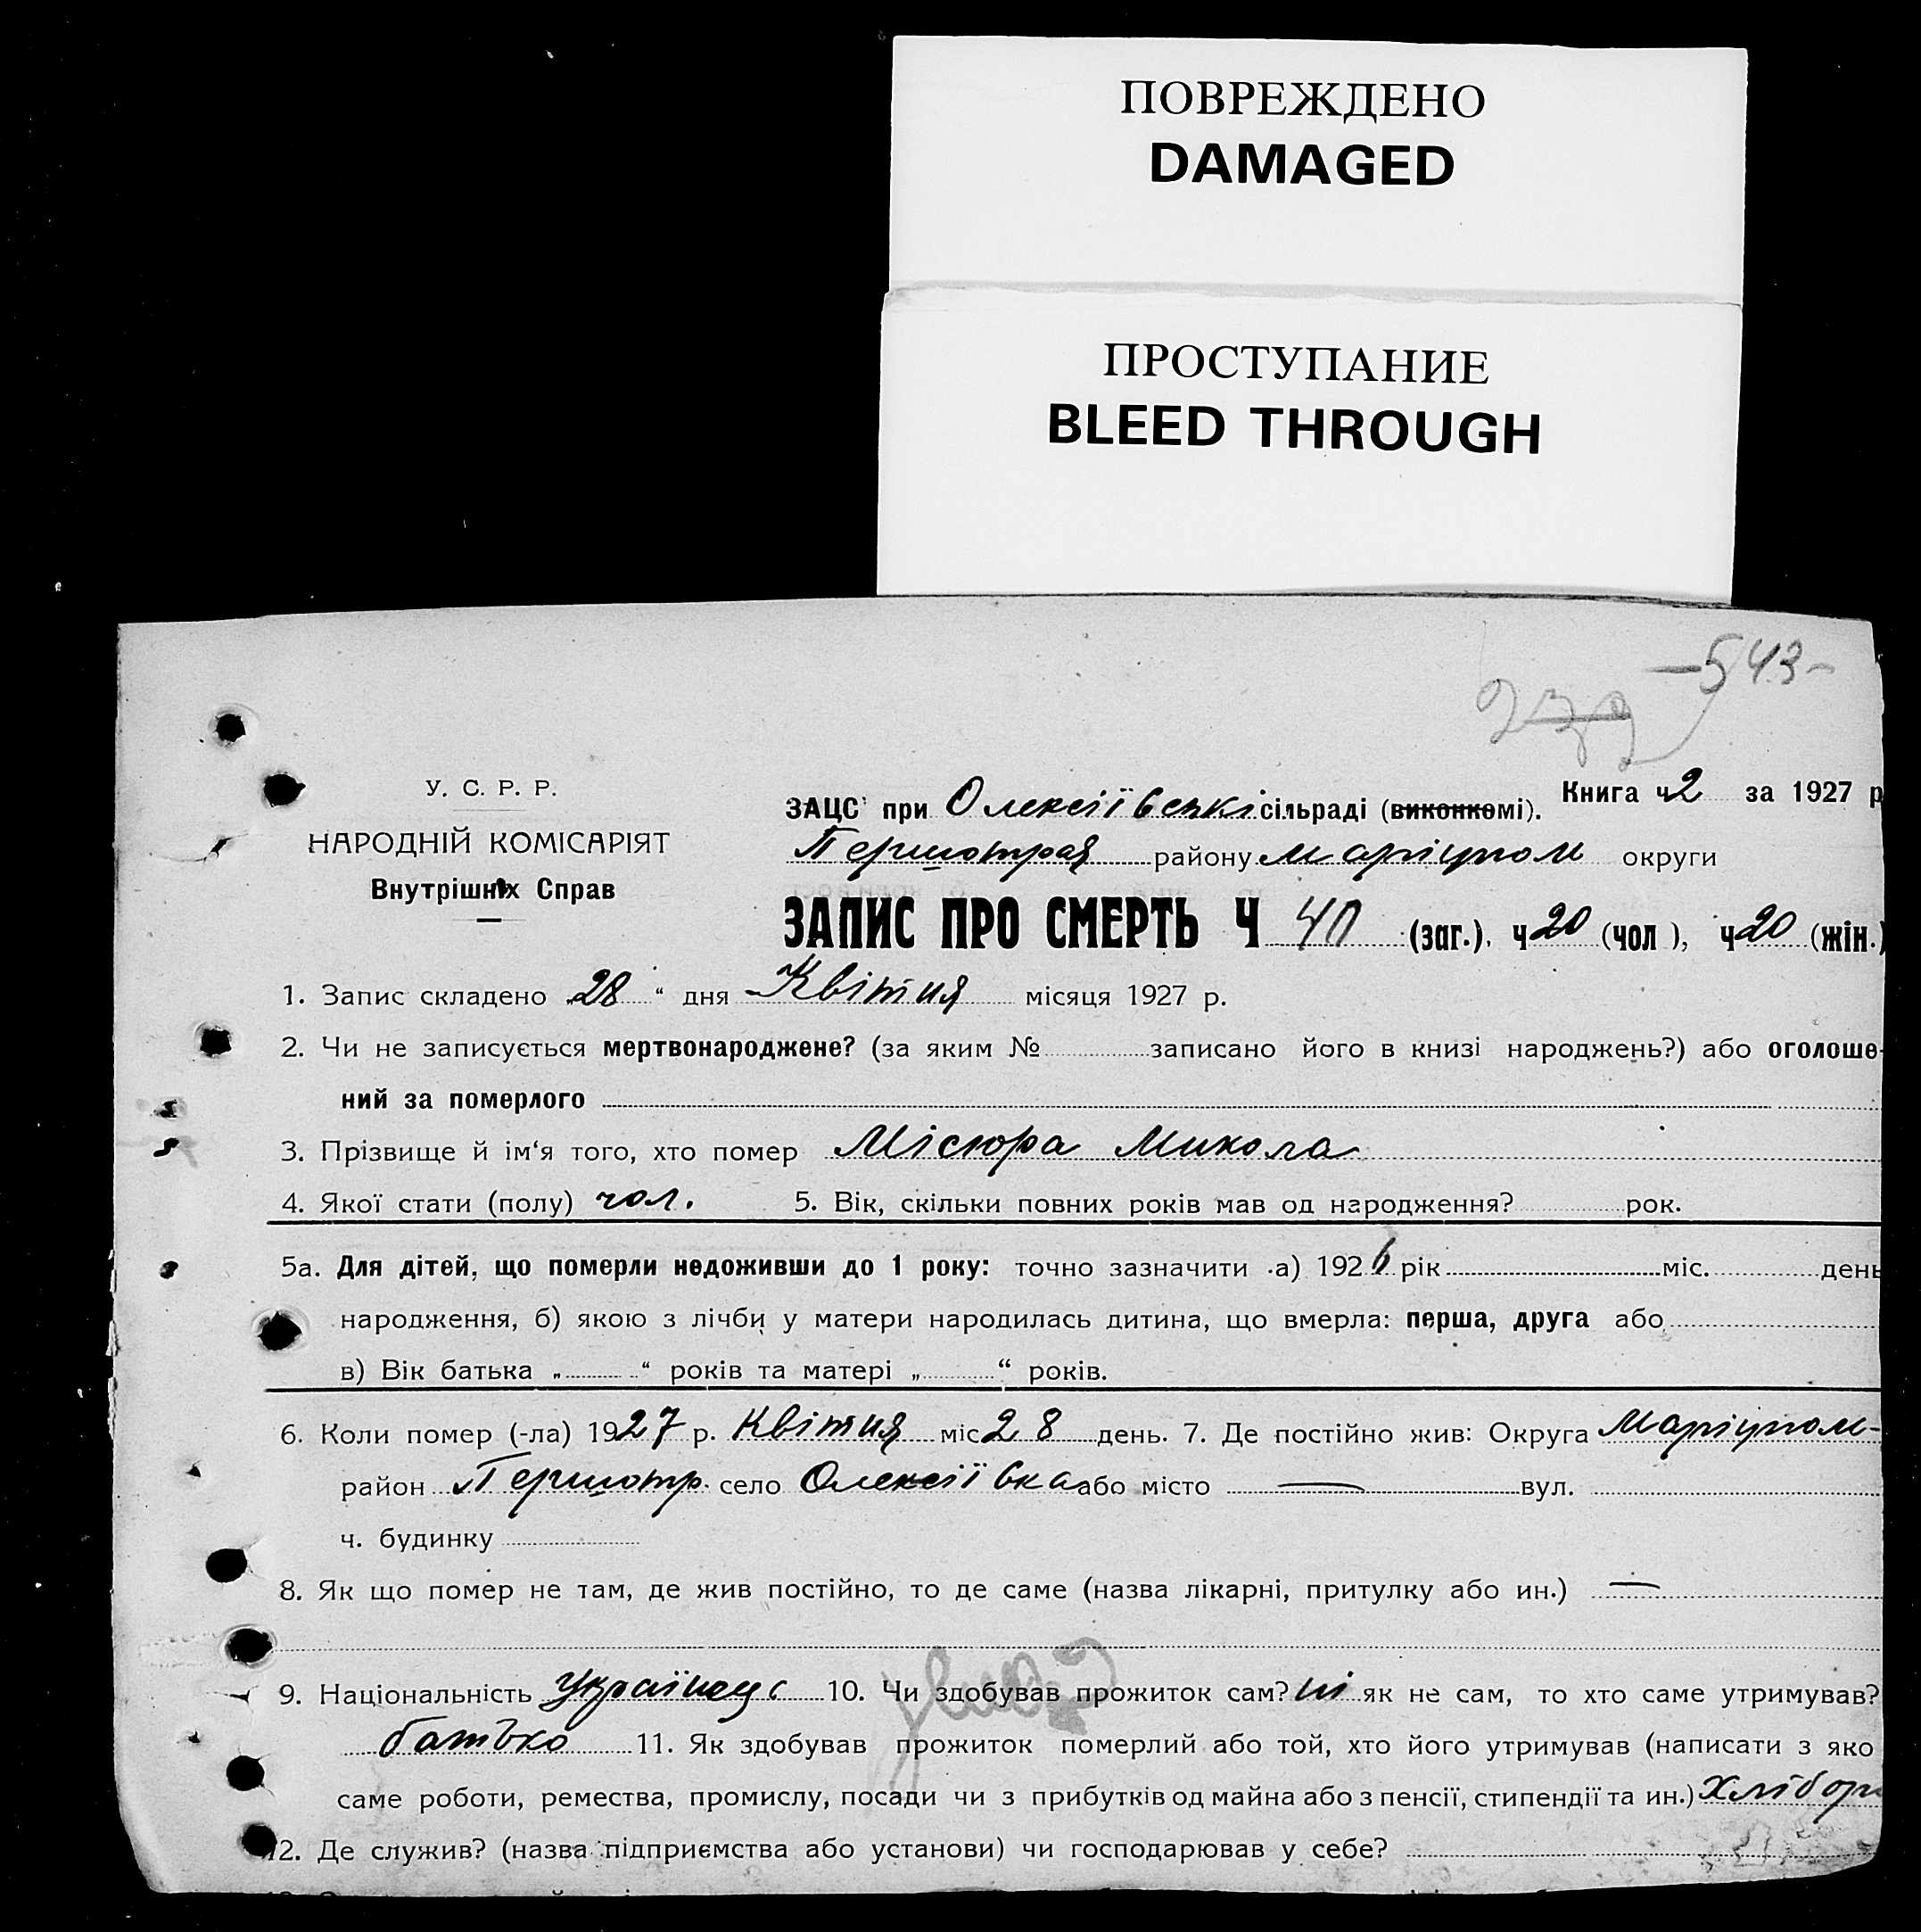 ПОВРЕЖДЕНО
DAMAGED
ПРОСТУПАНИЕ
BLEED THROUGH
—543—
239
У. С. Р. Р.
НАРОДНІЙ КОМІСАРІЯТ
Внутрішніх Справ
ЗАЦС при Олексіївські сільраді (виконкомі). Книга ч 2 за 1927 р
Першотрав району Маріупол округи
ЗАПИС ПРО СМЕРТЬ Ч 40 (заг.). ч 20 (чол), ч 20 (жін.)
1. Запис складено „28“ дня Квітня місяця 1927 р.
2. Чи не записується мертвонароджене? (за яким № записано його в книзі народжень?) або оголоше-
ний за померлого
3. Прізвище й ім'я того, хто помер Місюра Микола
4. Якої стати (полу) чол. 5. Вік, скільки повних років мав од народження? рок.
5а. Для дітей, що померли недоживши до 1 року: точно зазначити а) 1926 рік міс. день
народження, б) якою з лічби у матери народилась дитина, що вмерла: перша, друга або
в) Вік батька „ “ років та матері „ “ років.
6. Коли помер (-ла) 1927 р. Квітня міс 28 день. 7. Де постійно жив: Округа Маріупол-
район Першотр. село Олексіївка або місто — вул.
ч. будинку
8. Як що помер не там, де жив постійно, то де саме (назва лікарні, притулку або ин.) —
9. Національність Українець 10. Чи здобував прожиток сам? ні як не сам, то хто саме утримував?
батько 11. Як здобував прожиток померлий або той, хто його утримував (написати з яко
саме роботи, ремества, промислу, посади чи з прибутків од майна або з пенсії, стипендії та ин.) Хлібор
12. Де служив? (назва підприємства або установи) чи господарював у себе?